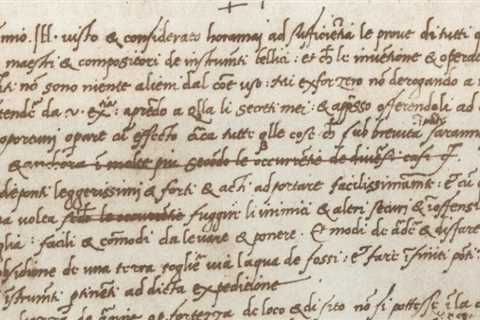 mio. Ill. visto & considerato horamai ad sufficientia le prove di tutti q
maestri & compositori de instrumti bellici: et ch le inventione & opera
ti non sono niente alieni dal coe uso: mi exforzero nõ derogando a
tender da v. ex.tia: aprendo a qlla li secreti miei: & appsso offerendoli ad
oportuni operare cũ effecto circa tutte qlle cose ch sub brevita in parte saranno
& anchora in molte piu secondo le occurrentie de diversi casi
de ponti leggerissimi & forti & acti ad portare facilissimamte: et cũ
na volta secõdo le occurrentie fuggire li inimici & altri securi & inoffensi
glia: facili & cõmodi da levare & ponere. Et modi de arder & disfare
obsidione de una terra toglier via laqua de fossi: et fare infiniti ponti
instrumti ptinenti ad dicta expeditione
de argine o fortezza de loco & di sito nõ si pottesse i la